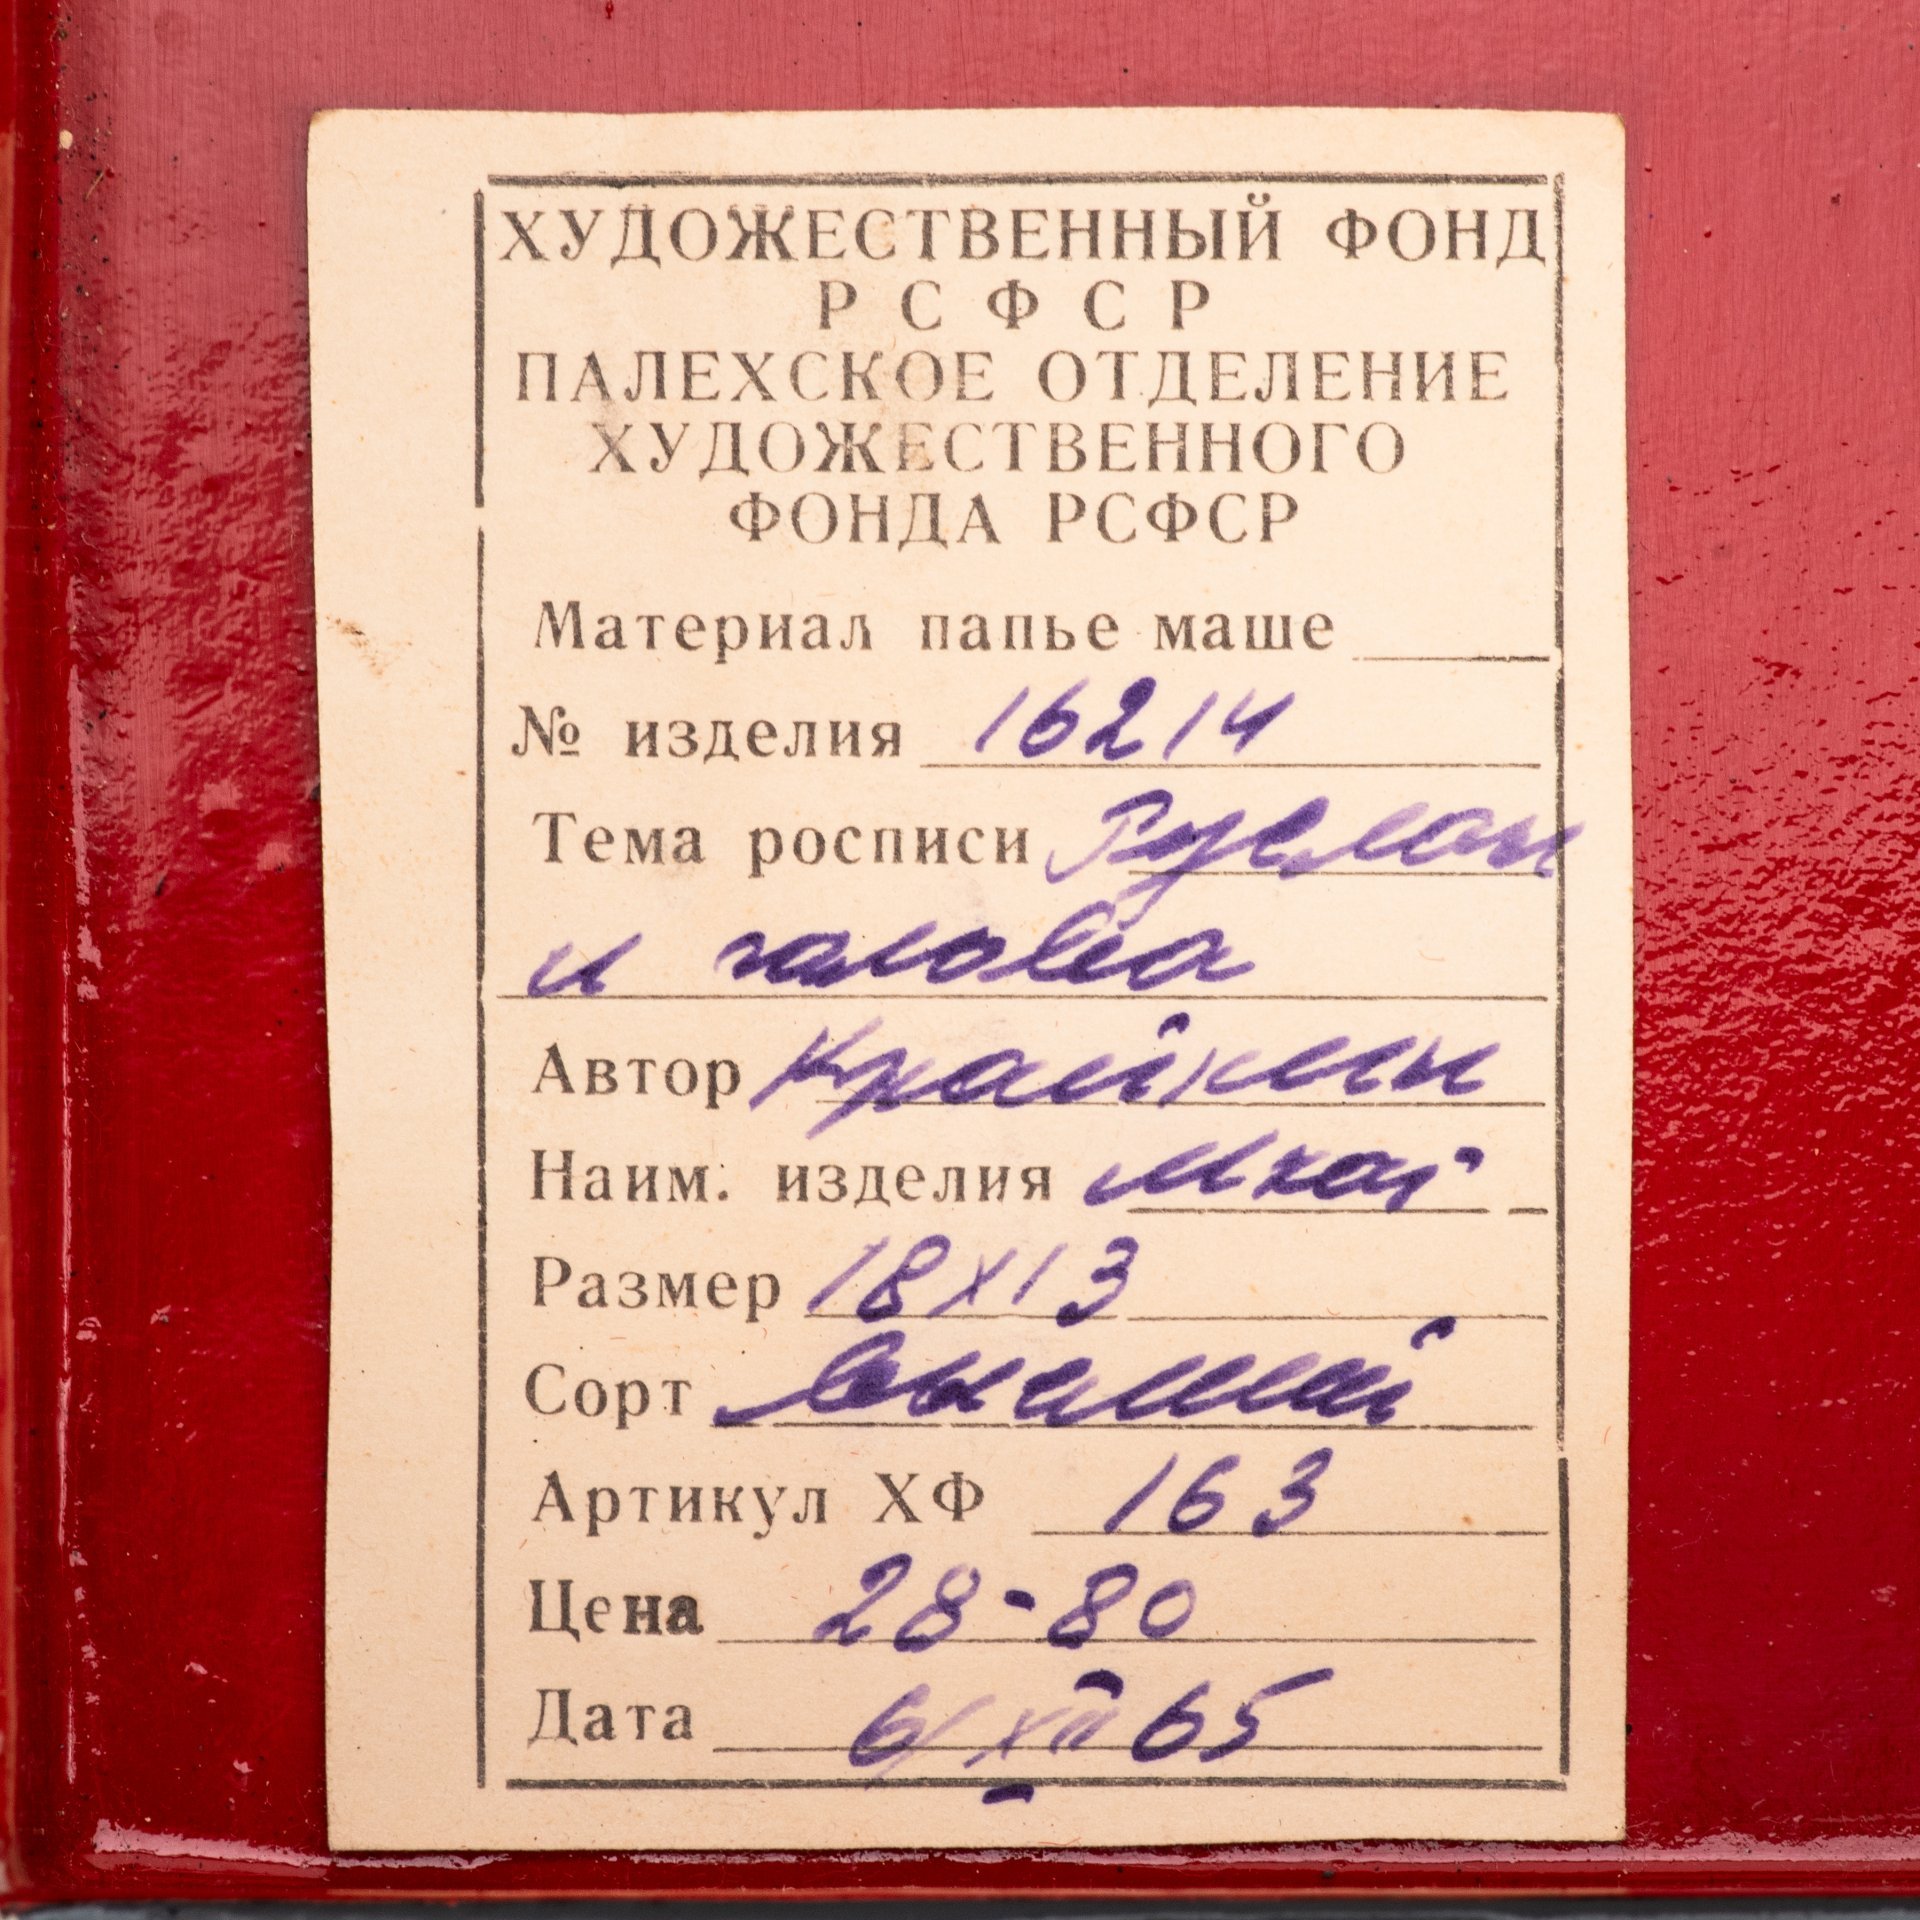 ХУДОЖЕСТВЕННЫЙ ФОНД
РСФСР
ПАЛЕХСКОЕ ОТДЕЛЕНИЕ
ХУДОЖЕСТВЕННОГО
ФОНДА РСФСР
Материал папье маше
№ изделия 16214
Тема росписи Руслан
и голова
Автор
Наим. изделия
Размер 18х13
Сорт
Артикул ХФ 163
Цена 28-80
Дата 6/XII 65